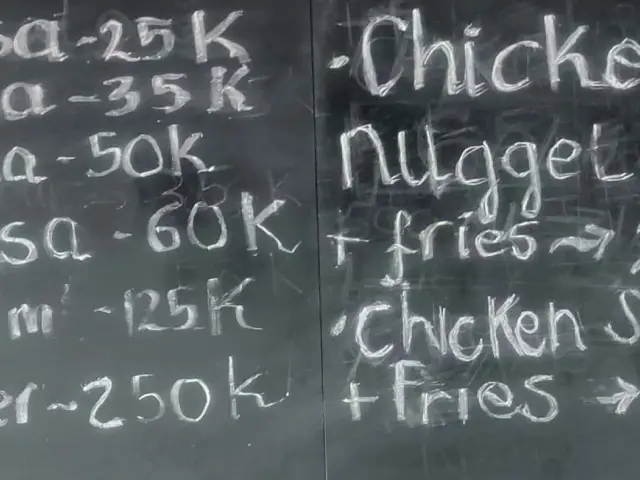 sa - 25K
a - 35K
a - 50K
sa - 60K
m - 125K
er - 250K
• Chicke
nugget
+ fries →
• Chicken S
+ Fries →